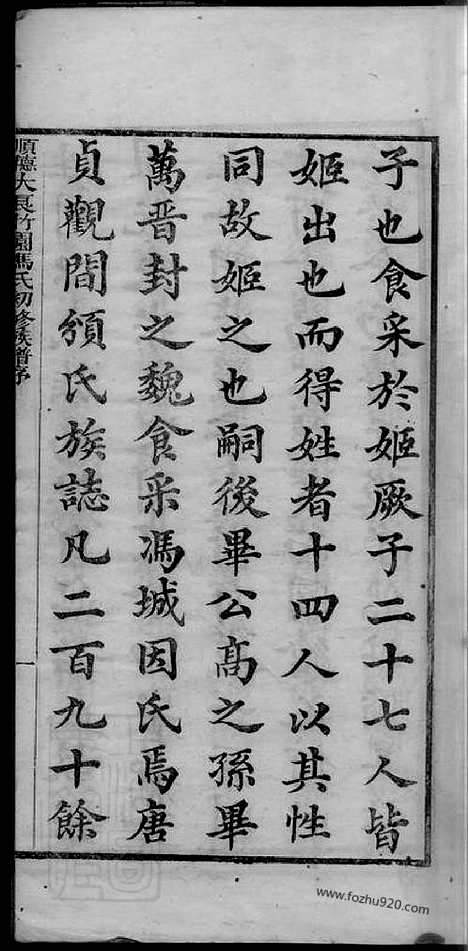 子也食采於姬厥子二十七人皆
姬出也而得姓者十四人以其性
同故姬之也嗣後畢公高之孫畢
萬晋封之魏食采馮城因氏焉唐
貞觀間頒氏族誌凡二百九十餘
順德大良竹園馮氏初修族譜序
一
www.fozhu920.com